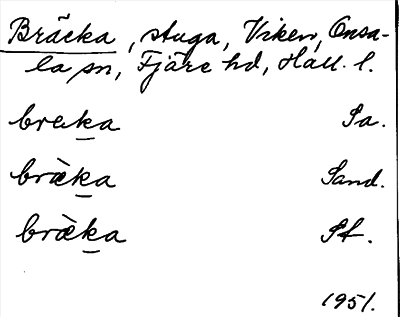 Bräcka, stuga, Viken, Onsa-
la sn, Fjäre hd, Hall. l.
brecka Sa.
bràka Sand.
bràka St.
1951.